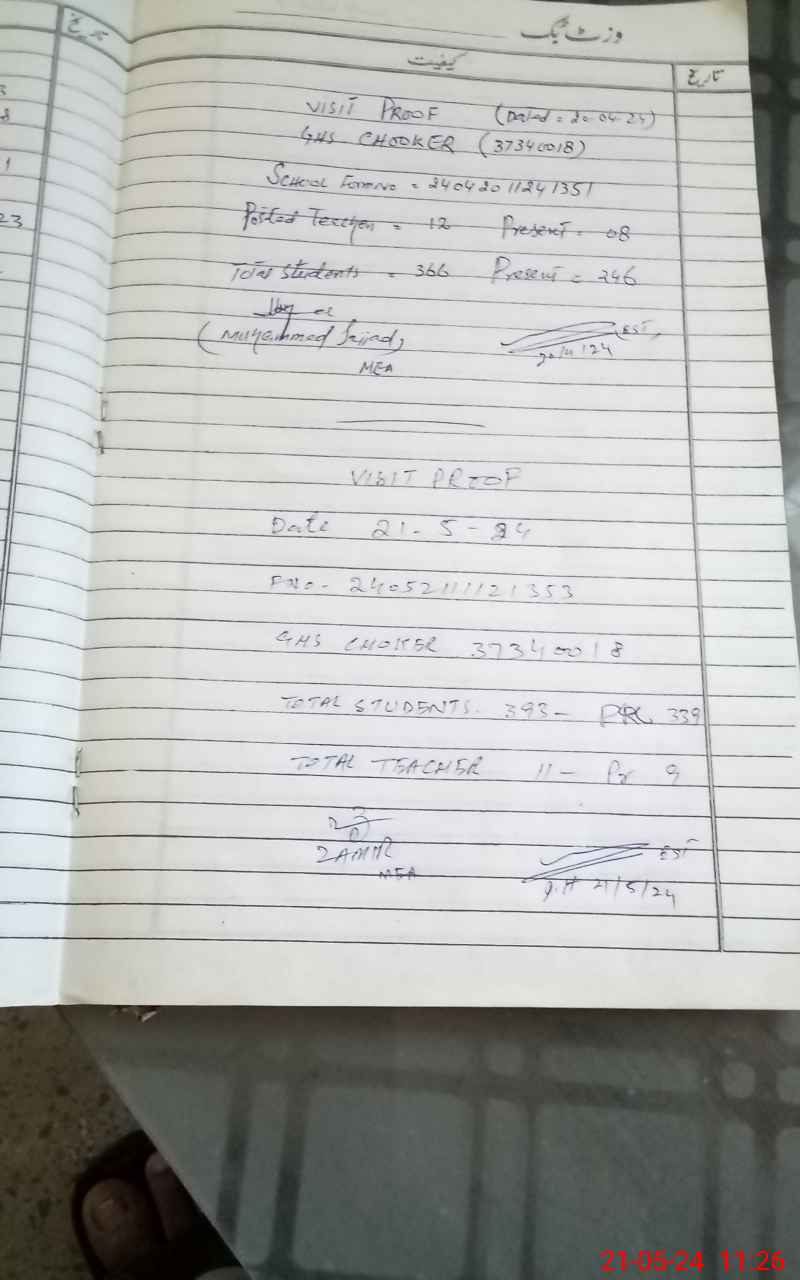 وزٹ بک
تاریخ
کیفیت
تاریخ
VISIT PROOF (Dated = 20-04-24)
GHS CHOOKER (37340018)
SCHOOL FormNo = 24042011241351
Posted Teacher = 12 Present = 08
Total Students = 366 Present = 246
(Muhammad Sajjad)
MEA
EST
20/4/24
VISIT PROOF
Date 21-5-24
FNo- 24052111121353
GHS CHOKER 37340018
TOTAL STUDENTS. 393- PRE 339
TOTAL TEACHER 11- Pr 9
ZAMIR
MEA
EST
21/5/24
3
8
1
23
21-05-24 11:26